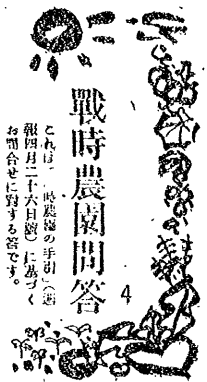 戰時農園問答
4
これは、「戰時農園の手引」（週
報四月二十六日號）に基づく
お問合せに對する答です。